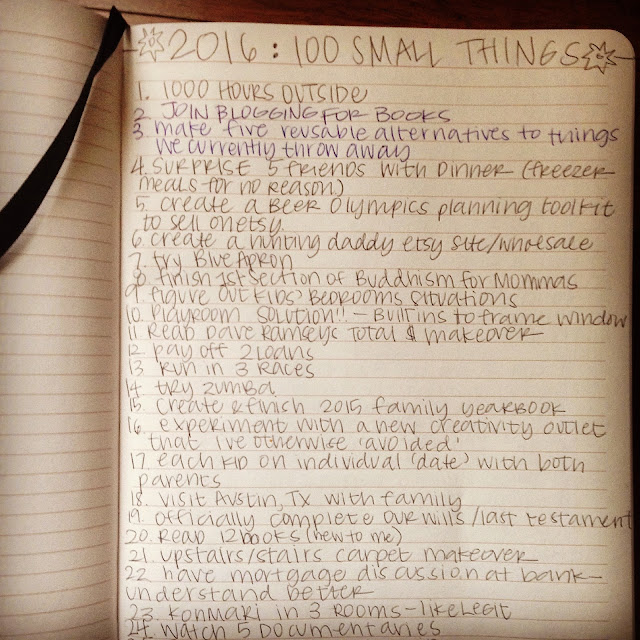 2016: 100 SMALL THINGS
1. 1000 HOURS OUTSIDE
2. JOIN BLOGGING FOR BOOKS
3. make five reusable alternatives to things
we currently throw away
4. SURPRISE 5 friends with Dinner (freezer
meals for no reason)
5. create a Beer Olympics planning toolkit
to sell on etsy
6. create a hunting daddy etsy site/wholesale
7. try Blue Apron
8. finish 1st section of Buddhism for Mommas
9. figure out kids' Bedrooms situations
10. Playroom solution!! - Built ins to frame window
11. Read Dave Ramsey's Total $ makeover
12. pay off 2 loans
13. run in 3 races
14. try zumba
15. create & finish 2015 family yearbook
16. experiment with a new creativity outlet
that i've otherwise 'avoided'
17. each kid on individual 'date' with both
parents
18. visit Austin, Tx with family
19. officially complete our wills/last testament
20. Read 12 books (new to me)
21 upstairs/stairs carpet makeover
22 have mortgage discussion at bank-
understand better
23. KonMari in 3 rooms - like legit
24. watch 5 Documentaries